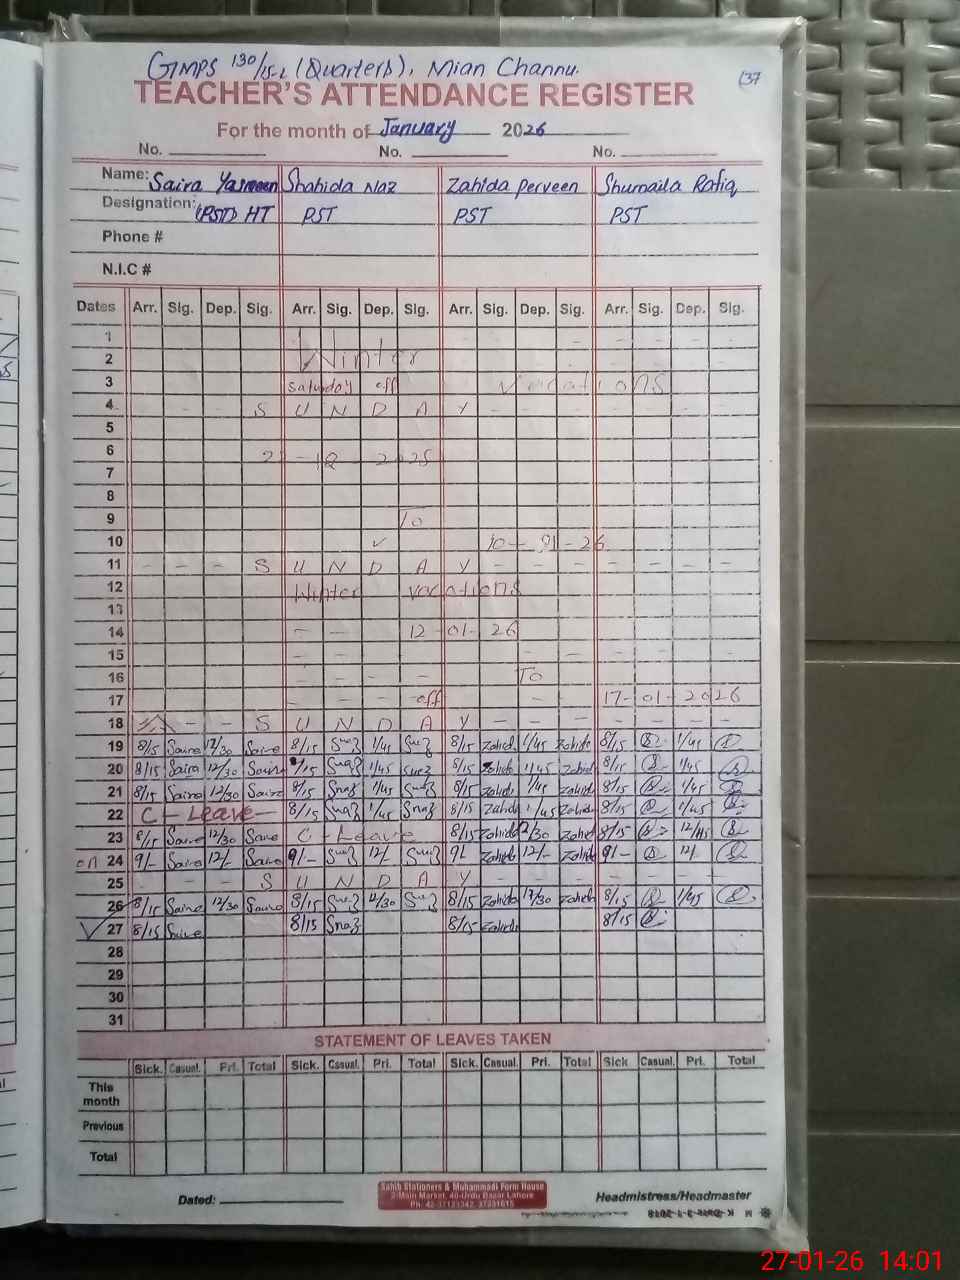 GMPS 130/15-L (Quarters), Mian Channu.
137
TEACHER'S ATTENDANCE REGISTER
For the month of January 2026
No. No. No.
Name: Saira Yasmeen Shahida Naz Zahida Perveen Shumaila Rafiq
Designation: (PST) HT PST PST PST
Phone #
N.I.C #
Dates Arr. Sig. Dep. Sig. Arr. Sig. Dep. Sig. Arr. Sig. Dep. Sig. Arr. Sig. Dep. Sig.
1
2 Winter
3 Saturday off Vacations
4 - - - S U N D A Y - - - - -
5
6 2 - 12 - 2025
7
8
9 To
10 10 - 01 - 26
11 - - - S U N D A Y - - - - -
12 Winter vacations
13
14 - - 12 - 01 - 26
15 - - - - - - - -
16 - - - - To
17 - - - off - 17 - 01 - 2026
18 - - S U N D A Y - - - - -
19 8/15 Saira 12/30 Saira 8/15 1/45 8/15 Zahida 1/45 Zahida 8/15 1/45
20 8/15 Saira 12/30 Saira 8/15 1/45 8/15 Zahida 1/45 Zahida 8/15 1/45
21 8/15 Saira 12/30 Saira 8/15 Snaz 1/45 8/15 Zahida 1/45 Zahida 8/15 1/45
22 C - Leave - 8/15 Snaz 1/45 Snaz 8/15 Zahida 1/45 Zahida 8/15 1/45
23 8/15 Saira 12/30 Saira C - Leave 8/15 Zahida 12/30 Zahida 8/15 12/45
on 24 9/- Saira 12/- Saira 9/- 12/- 9/- Zahida 12/- Zahida 9/- 12/-
25 - - - S U N D A Y - - - - -
26 8/15 Saira 12/30 Saira 8/15 12/30 8/15 Zahida 12/30 Zahida 8/15 1/45
27 8/15 Saira 8/15 Snaz 8/15 Zahida 8/15
28
29
30
31
STATEMENT OF LEAVES TAKEN
Sick. Casual. Pri. Total Sick. Casual. Pri. Total Sick. Casual. Pri. Total Sick Casual. Pri. Total
This month
Previous
Total
Dated:
Sahib Stationers & Muhammadi Form House
2-Main Market, 40-Urdu Bazar Lahore
Headmistress/Headmaster
27-01-26 14:01